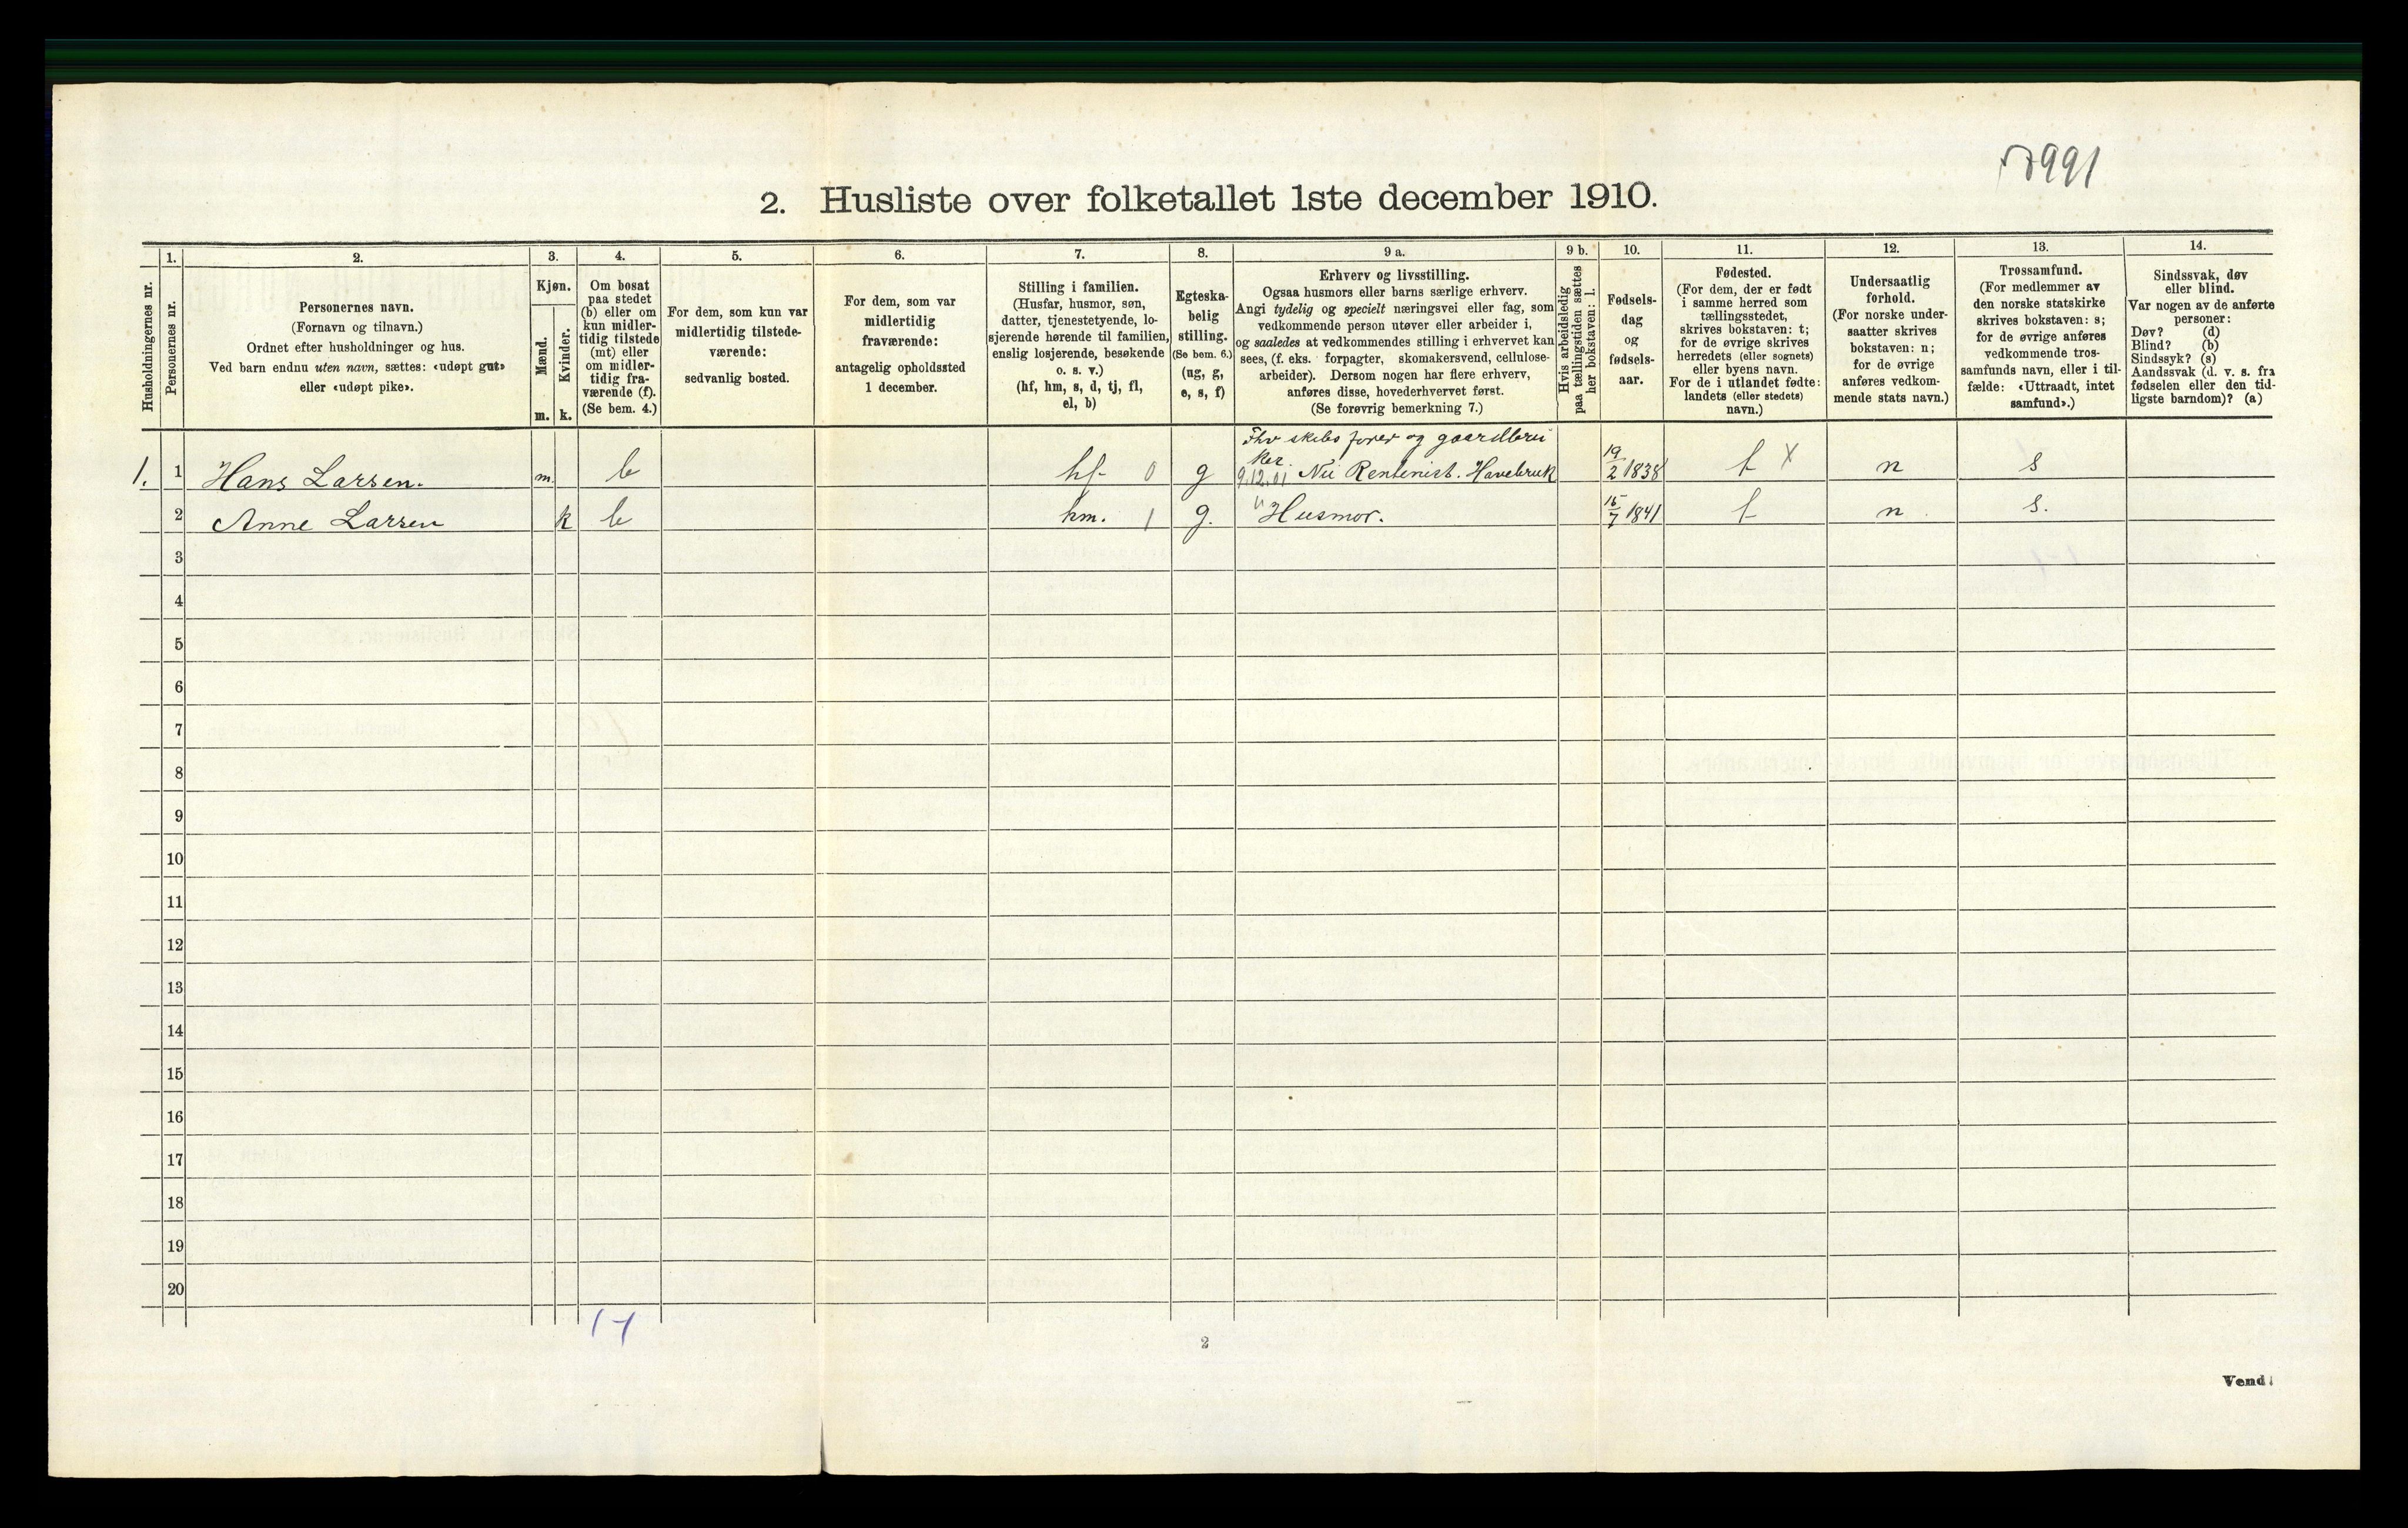 7991
2. Husliste over folketallet 1ste december 1910.
Husholdningernes nr.
1.
Personernes nr.
2.
Personernes navn.
(Fornavn og tilnavn.)
Ordnet efter husholdninger og hus.
Ved barn endnu uten navn, sættes: «udøpt gut»
eller «udøpt pike».
3.
Kjøn.
Mænd.
Kvinder.
m. k.
4.
Om bosat
paa stedet
(b) eller om
kun midler-
tidig tilstede
(mt) eller
om midler-
tidig fra-
værende (f).
(Se bem. 4.)
5.
For dem, som kun var
midlertidig tilstede-
værende:
sedvanlig bosted.
6.
For dem, som var
midlertidig
fraværende:
antagelig opholdssted
1 december.
7.
Stilling i familien.
(Husfar, husmor, søn,
datter, tjenestetyende, lo-
sjerende hørende til familien,
enslig losjerende, besøkende
o. s. v.)
(hf, hm, s, d, tj, fl,
el, b)
8.
Egteska-
belig
stilling.
(Se bem. 6.)
(ug, g,
e, s, f)
9 a.
Erhverv og livsstilling.
Ogsaa husmors eller barns særlige erhverv.
Angi tydelig og specielt næringsvei eller fag, som
vedkommende person utøver eller arbeider i,
og saaledes at vedkommendes stilling i erhvervet kan
sees, (f. eks. forpagter, skomakersvend, cellulose-
arbeider). Dersom nogen har flere erhverv,
anføres disse, hovederhvervet først.
(Se forøvrig bemerkning 7.)
9 b.
Hvis arbeidsledig
paa tællingstiden sættes
her bokstaven: l.
10.
Fødsels-
dag
og
fødsels-
aar.
11.
Fødested.
(For dem, der er født
i samme herred som
tællingsstedet,
skrives bokstaven: t;
for de øvrige skrives
herredets (eller sognets)
eller byens navn.
For de i utlandet fødte:
landets (eller stedets)
navn.)
12.
Undersaatlig
forhold.
(For norske under-
saatter skrives
bokstaven: n;
for de øvrige
anføres vedkom-
mende stats navn.)
13.
Trossamfund.
(For medlemmer av
den norske statskirke
skrives bokstaven: s;
for de øvrige anføres
vedkommende tros-
samfunds navn, eller i til-
fælde: «Uttraadt, intet
samfund».)
14.
Sindssvak, døv
eller blind.
Var nogen av de anførte
personer:
Døv? (d)
Blind? (b)
Sindssyk? (s)
Aandssvak (d. v. s. fra
fødselen eller den tid-
ligste barndom)? (a)
Fhv skibsfører og gaardbru
ker.
1. 1 Hans Larsen. m. b hf 0 g 9.12.01 Nu Rentenist. Havebruk 19/2 1838 t X n s
2 Anne Larsen k b hm. 1 g. " Husmor. 15/7 1841 t n s.
3
4
5
6
7
8
9
10
11
12
13
14
15
16
17
18
19
20
1-1
2
Vend!